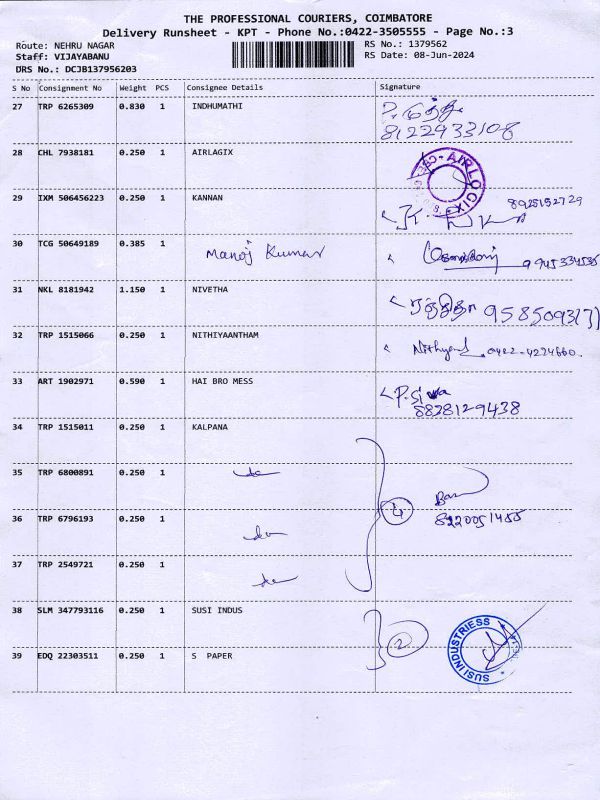 THE PROFESSIONAL COURIERS, COIMBATORE
Delivery Runsheet - KPT - Phone No.:0422-3505555 - Page No.:3
Route: NEHRU NAGAR
Staff: VIJAYABANU
DRS No.: DCJB137956203
RS No.: 1379562
RS Date: 08-Jun-2024
S No Consignment No Weight PCS Consignee Details Signature
27 TRP 6265309 0.830 1 INDHUMATHI
8122933108
28 CHL 7938181 0.250 1 AIRLAGIX
AIRLOGIX
29 IXM 506456223 0.250 1 KANNAN
8925152729
30 TCG 50649189 0.385 1 Manoj Kumar
9945334535
31 NKL 8181942 1.150 1 NIVETHA
32 TRP 1515066 0.250 1 NITHIYAANTHAM
0422-4224660.
33 ART 1902971 0.590 1 HAI BRO MESS
P. Siva
8828129438
34 TRP 1515011 0.250 1 KALPANA
35 TRP 6800891 0.250 1 do
4
36 TRP 6796193 0.250 1 do
8220051455
37 TRP 2549721 0.250 1 do
38 SLM 347793116 0.250 1 SUSI INDUS
2
SUSI INDUSTRIESS
39 EDQ 22303511 0.250 1 S PAPER